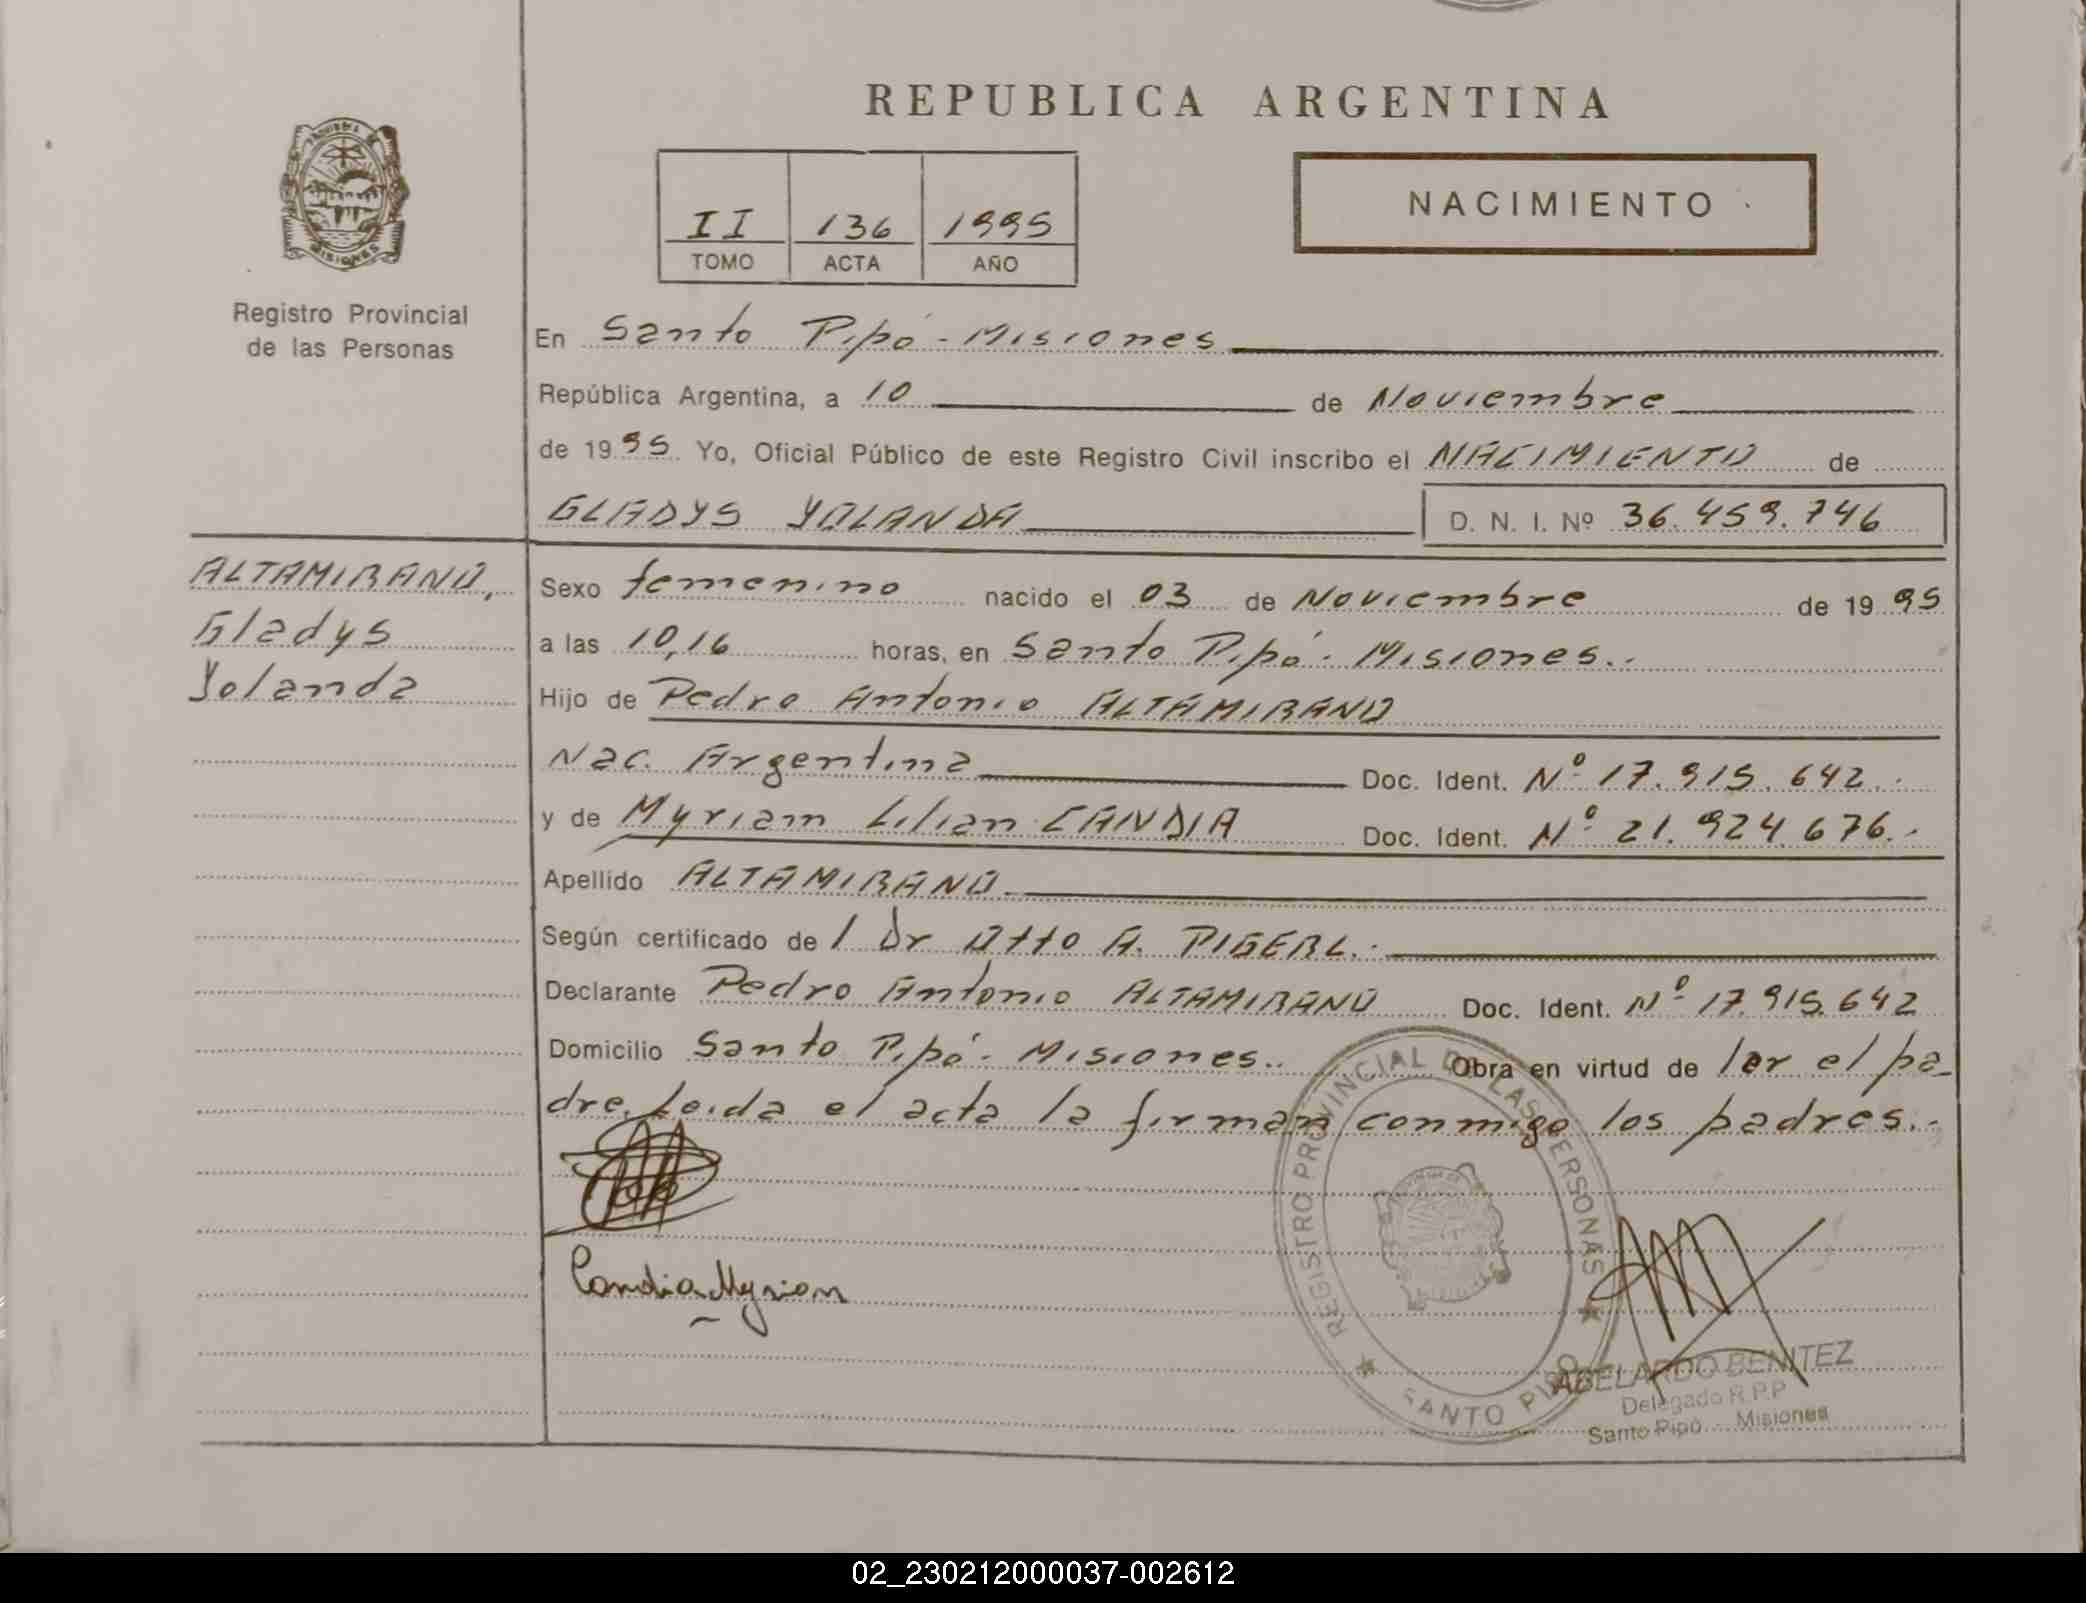 REPUBLICA ARGENTINA
PROVINCIA DE
MISIONES
Registro Provincial
de las Personas
II 136 1995
TOMO ACTA AÑO
NACIMIENTO
En Santo Pipó - Misiones
República Argentina, a 10 de Noviembre
de 1995 Yo, Oficial Público de este Registro Civil inscribo el NACIMIENTO de
GLADYS YOLANDA D. N. I. Nº 36.459.746
ALTAMIRANO,
Gladys
Yolanda
Sexo femenino nacido el 03 de Noviembre de 1995
a las 10,16 horas, en Santo Pipó - Misiones.-
Hijo de Pedro Antonio ALTAMIRANO
Nac. Argentina Doc. Ident. Nº 17.915.642.-
y de Myriam Lilian CANDIA Doc. Ident. Nº 21.924.676.-
Apellido ALTAMIRANO
Según certificado de l Dr Otto A. PIGERL.-
Declarante Pedro Antonio ALTAMIRANO Doc. Ident. Nº 17.915.642
Domicilio Santo Pipó - Misiones.. Obra en virtud de ser el pa-
dre. Leida el acta la firman conmigo los padres.-
Candia Myrian
REGISTRO PROVINCIAL DE LAS PERSONAS
SANTO PIPO
ABELARDO BENITEZ
Delegado R.P.P
Santo Pipó - Misiones
02_230212000037-002612